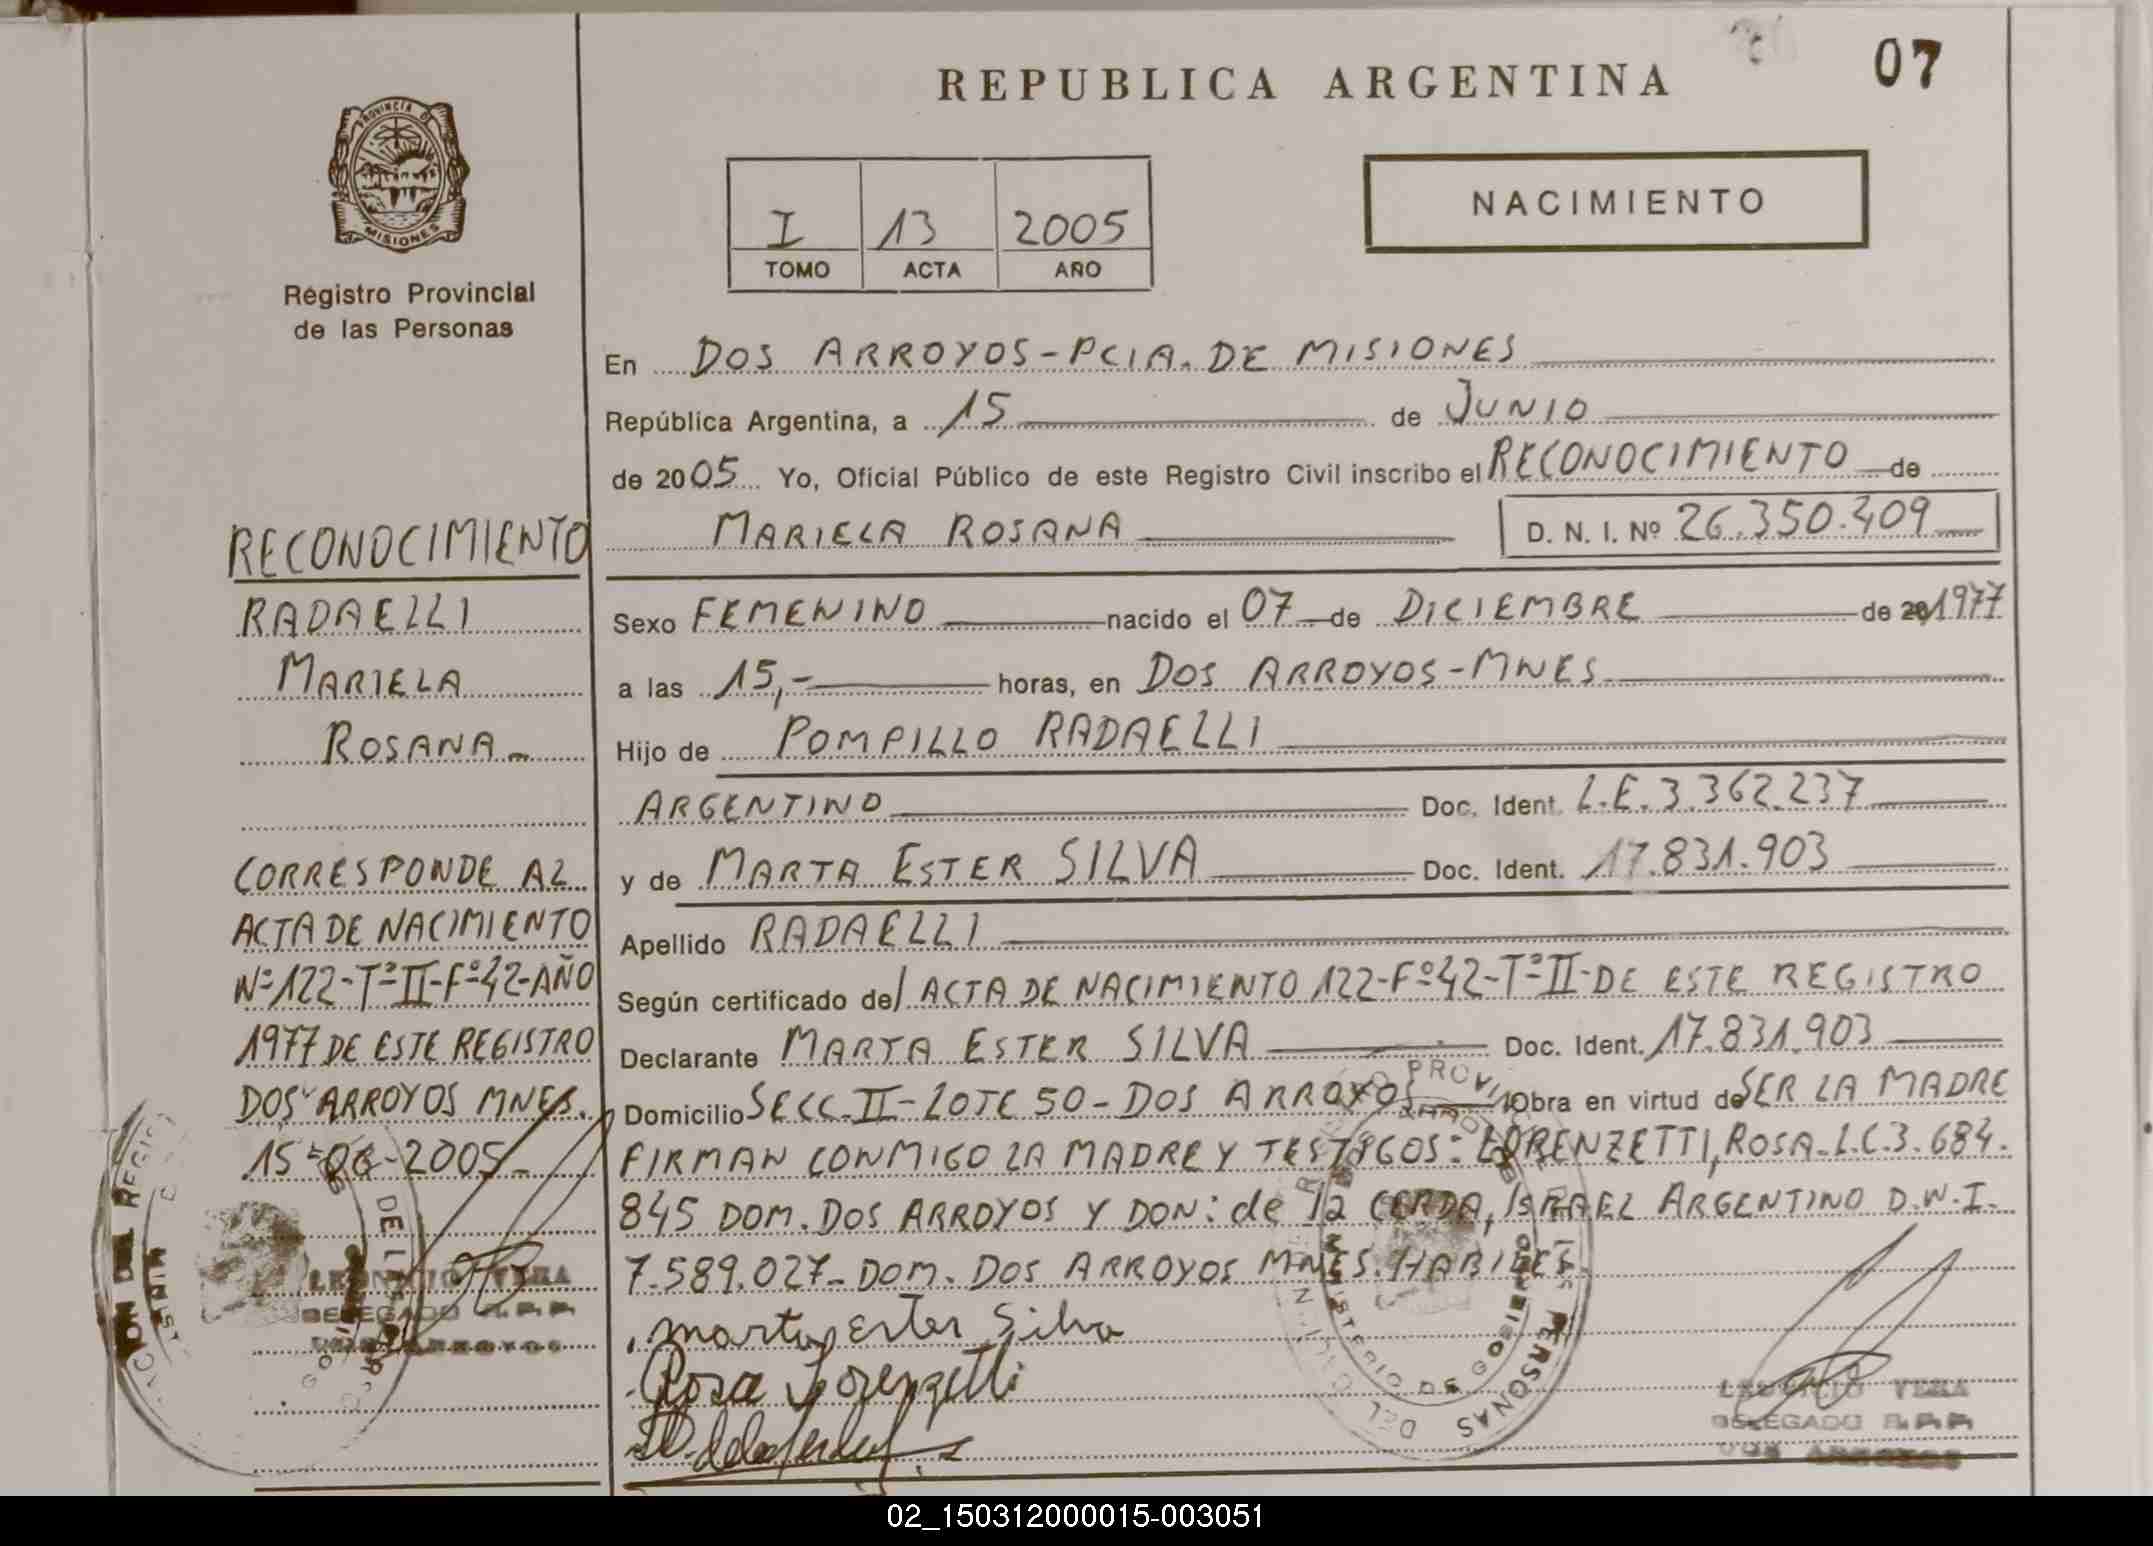 REPUBLICA ARGENTINA
07
PROVINCIA DE
MISIONES
Registro Provincial
de las Personas
I 13 2005
TOMO ACTA AÑO
NACIMIENTO
En DOS ARROYOS-PCIA. DE MISIONES
República Argentina, a 15 de JUNIO
de 2005 Yo, Oficial Público de este Registro Civil inscribo el RECONOCIMIENTO de
MARIELA ROSANA D. N. I. Nº 26.350.409
Sexo FEMENINO nacido el 07 de DICIEMBRE de 1977
a las 15,- horas, en DOS ARROYOS-MNES
Hijo de POMPILLO RADAELLI
ARGENTINO Doc. Ident. L.E. 3.362.237
y de MARTA ESTER SILVA Doc. Ident. 17.831.903
Apellido RADAELLI
Según certificado de/ ACTA DE NACIMIENTO 122-Fº42-Tº II-DE ESTE REGISTRO
Declarante MARTA ESTER SILVA Doc. Ident. 17.831.903
Domicilio SECC. II-LOTE 50-DOS ARROYOS Obra en virtud de SER LA MADRE
FIRMAN CONMIGO LA MADRE Y TESTIGOS: LORENZETTI, ROSA-L.C.3.684.
845 DOM. DOS ARROYOS Y DON: de la CERDA, ISRAEL ARGENTINO D.N.I.
7.589.027- DOM. DOS ARROYOS MNES. HABILES.
Marta Ester Silva
Rosa Lorenzetti
LEONICIO VERA
DELEGADO R.P.P.
DOS ARROYOS
RECONOCIMIENTO
RADAELLI
MARIELA
ROSANA-
CORRESPONDE AL
ACTA DE NACIMIENTO
Nº 122-Tº II-Fº42-AÑO
1977 DE ESTE REGISTRO
DOS ARROYOS MNES.
15-06-2005-
LEONICIO VERA
DELEGADO R.P.P.
DOS ARROYOS
02_150312000015-003051